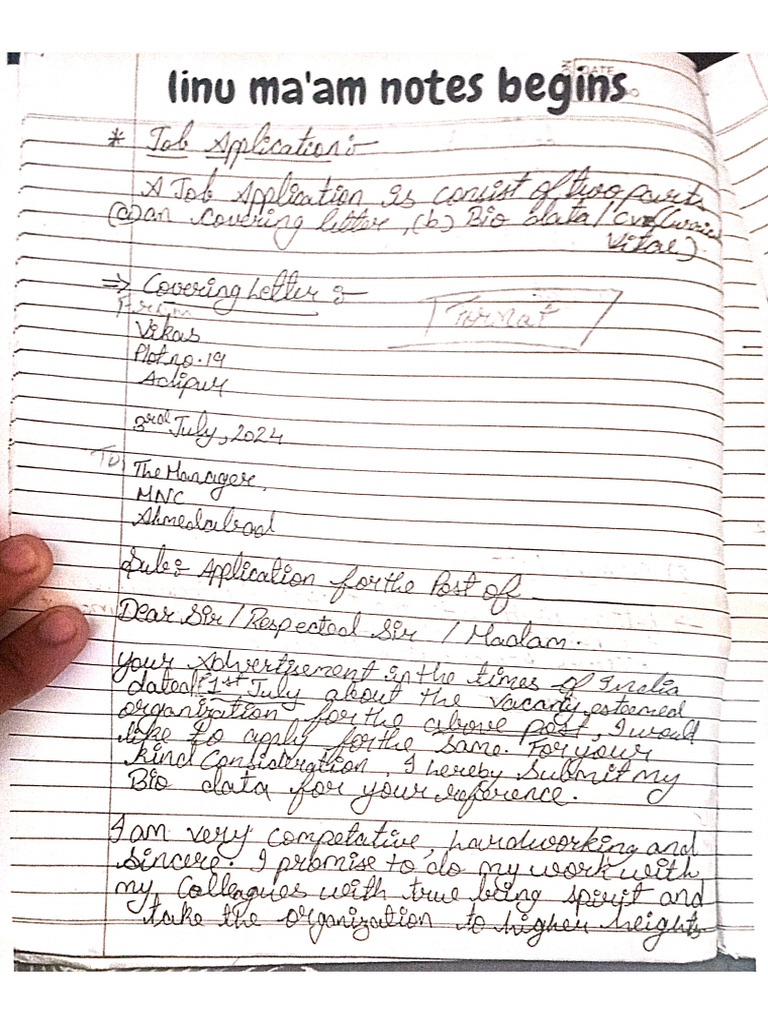 linu ma'am notes begins
DATE
* Job Application :-
A Job Application is consist of two parts
(a) an covering letter, (b) Bio data / cv
Vitae)
=> Covering Letter :-
From
Format
Vikas
Plot no. 19
Adipur
3rd July, 2024
To
The Manager,
MNC
Ahmedabad
Sub: Application for the Post of
Dear Sir / Respected Sir / Madam.
your Advertisement in the times of India
dated 1st July about the vacancy esteemed
organization for the above post, I would
like to apply for the same. For your
kind Consideration, I hereby Submit my
Bio data for your reference.
I am very competative, hardworking and
Sincere. I promise to do my work with
my Colleagues with true being spirit and
take the organization to higher heights